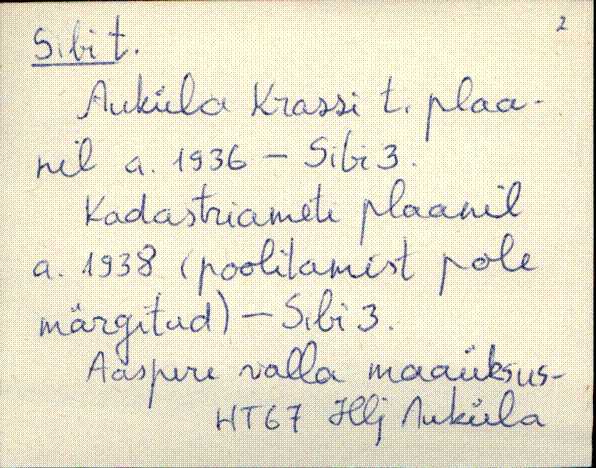 2
Sibi t.
Auküla Krassi t. plaa-
nil a. 1936 – Sibi 3.
Kadastriameti plaanil
a. 1938 (poolitamist pole
märgitud) – Sibi 3.
Aaspere valla maaüksus-
HT67 Hlj Auküla